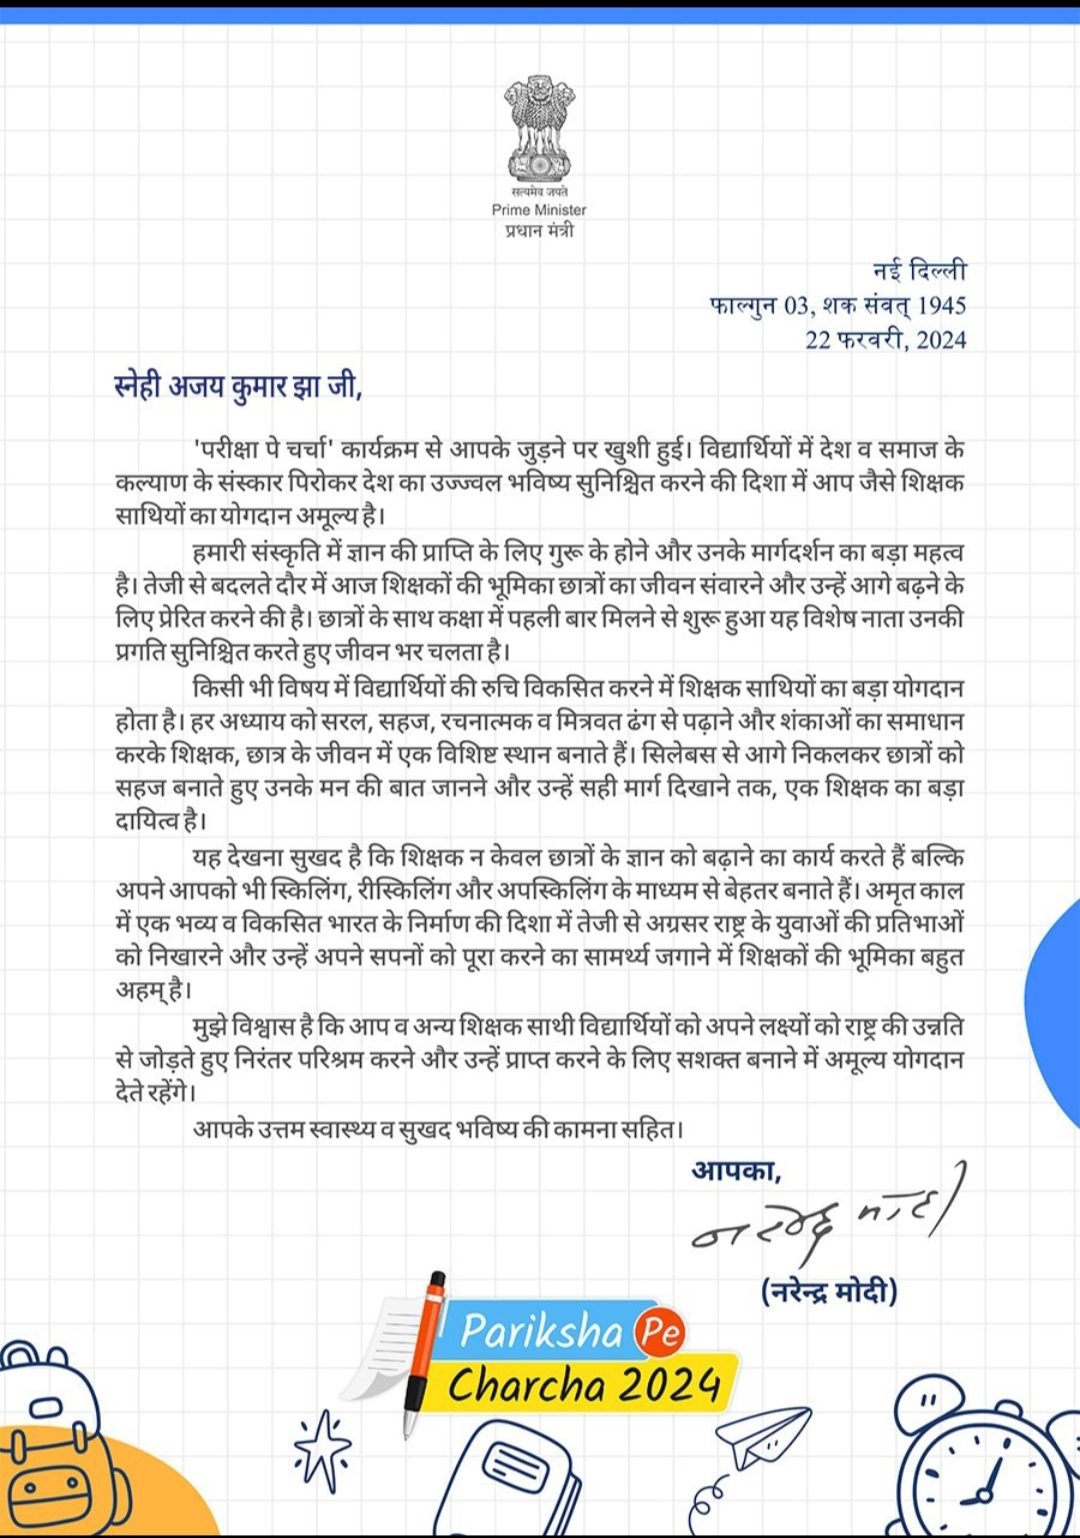 सत्यमेव जयते
Prime Minister
प्रधान मंत्री
नई दिल्ली
फाल्गुन 03, शक संवत् 1945
22 फरवरी, 2024
स्नेही अजय कुमार झा जी,
'परीक्षा पे चर्चा' कार्यक्रम से आपके जुड़ने पर खुशी हुई। विद्यार्थियों में देश व समाज के
कल्याण के संस्कार पिरोकर देश का उज्ज्वल भविष्य सुनिश्चित करने की दिशा में आप जैसे शिक्षक
साथियों का योगदान अमूल्य है।
हमारी संस्कृति में ज्ञान की प्राप्ति के लिए गुरू के होने और उनके मार्गदर्शन का बड़ा महत्व
है। तेजी से बदलते दौर में आज शिक्षकों की भूमिका छात्रों का जीवन संवारने और उन्हें आगे बढ़ने के
लिए प्रेरित करने की है। छात्रों के साथ कक्षा में पहली बार मिलने से शुरू हुआ यह विशेष नाता उनकी
प्रगति सुनिश्चित करते हुए जीवन भर चलता है।
किसी भी विषय में विद्यार्थियों की रुचि विकसित करने में शिक्षक साथियों का बड़ा योगदान
होता है। हर अध्याय को सरल, सहज, रचनात्मक व मित्रवत ढंग से पढ़ाने और शंकाओं का समाधान
करके शिक्षक, छात्र के जीवन में एक विशिष्ट स्थान बनाते हैं। सिलेबस से आगे निकलकर छात्रों को
सहज बनाते हुए उनके मन की बात जानने और उन्हें सही मार्ग दिखाने तक, एक शिक्षक का बड़ा
दायित्व है।
यह देखना सुखद है कि शिक्षक न केवल छात्रों के ज्ञान को बढ़ाने का कार्य करते हैं बल्कि
अपने आपको भी स्किलिंग, रीस्किलिंग और अपस्किलिंग के माध्यम से बेहतर बनाते हैं। अमृत काल
में एक भव्य व विकसित भारत के निर्माण की दिशा में तेजी से अग्रसर राष्ट्र के युवाओं की प्रतिभाओं
को निखारने और उन्हें अपने सपनों को पूरा करने का सामर्थ्य जगाने में शिक्षकों की भूमिका बहुत
अहम् है।
मुझे विश्वास है कि आप व अन्य शिक्षक साथी विद्यार्थियों को अपने लक्ष्यों को राष्ट्र की उन्नति
से जोड़ते हुए निरंतर परिश्रम करने और उन्हें प्राप्त करने के लिए सशक्त बनाने में अमूल्य योगदान
देते रहेंगे।
आपके उत्तम स्वास्थ्य व सुखद भविष्य की कामना सहित।
आपका,
नरेन्द्र मोदी
(नरेन्द्र मोदी)
Pariksha Pe
Charcha 2024